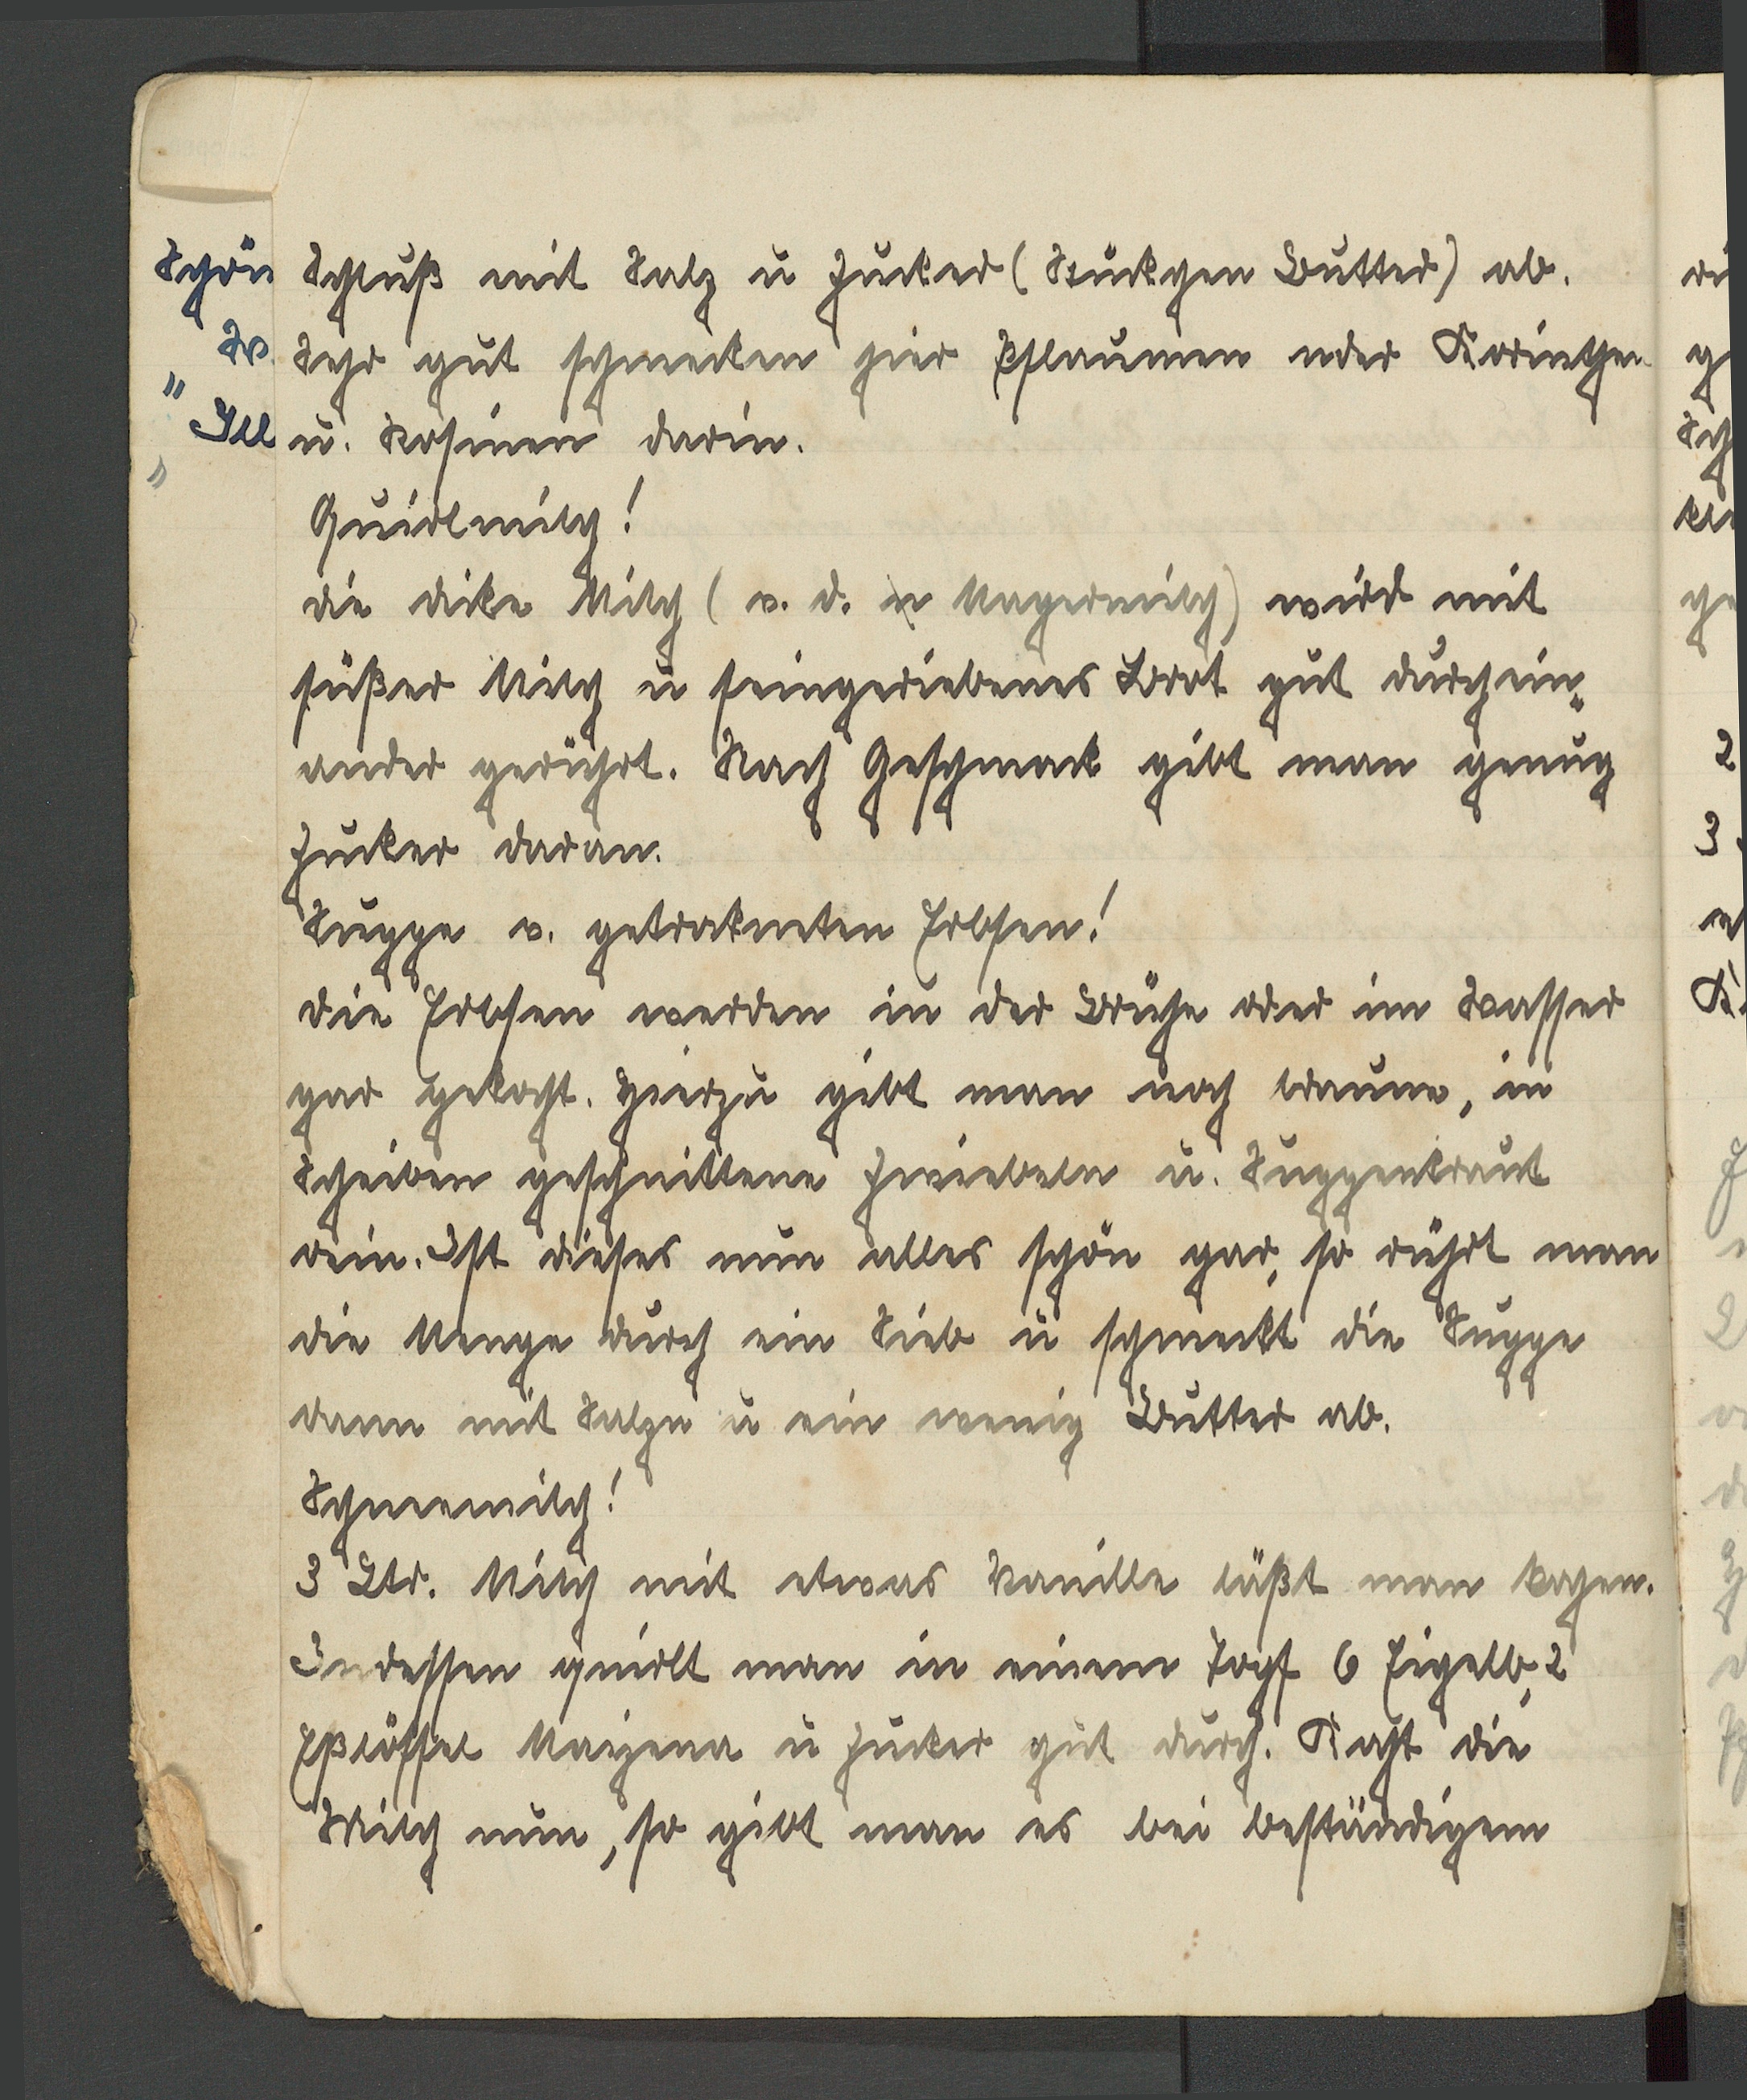 Schluß mit Salz u Zucker (Stückchen Butter) ab.
Sehr gut schmecken hier Pflaumen oder Korinthen
u. Rosinen darin.
Quirlmilch!
die dicke Milch (v. d. Magermilch) wird mit
süßer Milch u feingeriebenes Brot gut durchein„
ander gerührt. Nach Geschmack gibt man genug
Zucker daran.
Suppe v. getrockneten Erbsen!
die Erbsen werden in der Brühe oder im Wasser
gar gekocht. Hierzu gibt man noch braune, in
Scheiben geschnittene Zwiebeln u. Suppenkraut
rein. Ist dieses nun alles schön gar, so rührt man
die Menge durch ein Sieb u schmeckt die Suppe
dann mit Salze u ein wenig Butter ab.
Schneemilch!
3 Ltr. Milch mit etwas Vanille läßt man kochen.
Indessen quirlt man in einem Topf 6 Eigelb, 2
Eßlöffel Maizena u Zucker gut durch. Kocht die
Milch nun, so gibt man es bei beständigem
Schön
"
"